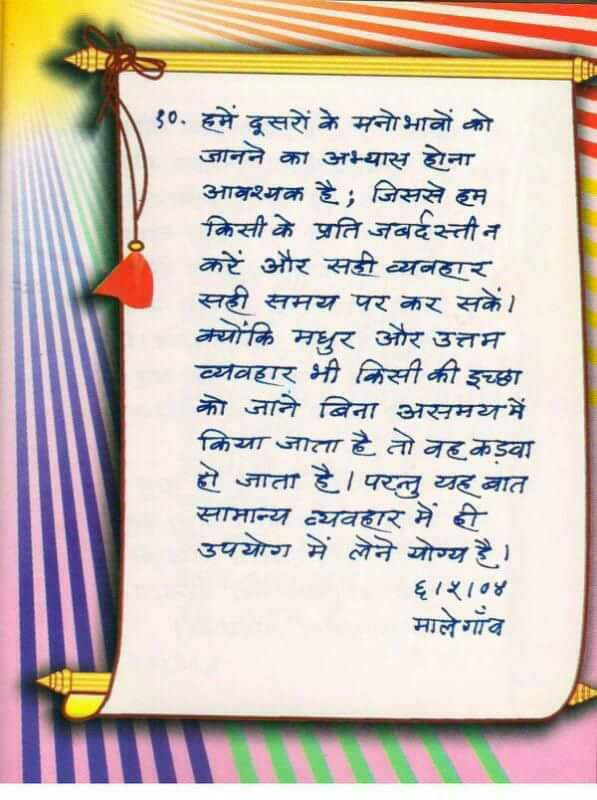 १०. हमें दूसरों के मनोभावों को
जानने का अभ्यास होना
आवश्यक है; जिससे हम
किसी के प्रति जबर्दस्ती न
करें और सही व्यवहार
सही समय पर कर सकें।
क्योंकि मधुर और उत्तम
व्यवहार भी किसी की इच्छा
को जाने बिना असमय में
किया जाता है तो वह कड़वा
हो जाता है। परन्तु यह बात
सामान्य व्यवहार में ही
उपयोग में लेने योग्य है।
६।५।०४
मालेगाँव